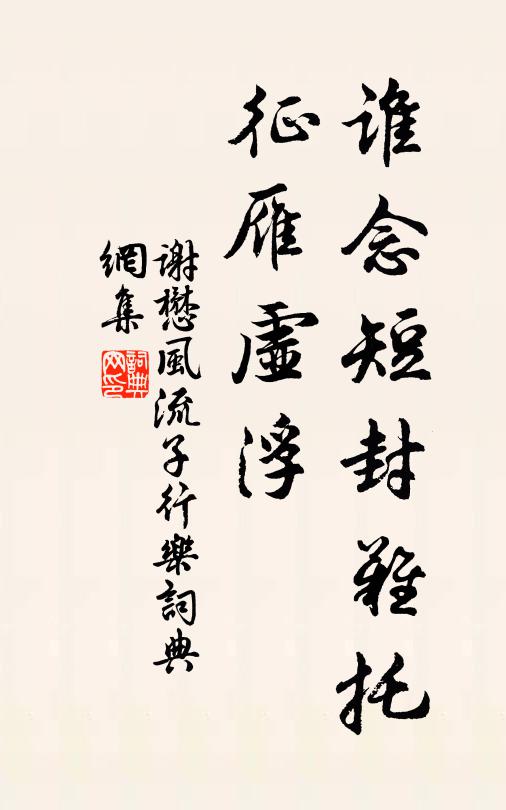 誰念短封難托
征雁虛浮
謝懋風流子行樂詞典
網集
詞典
网印